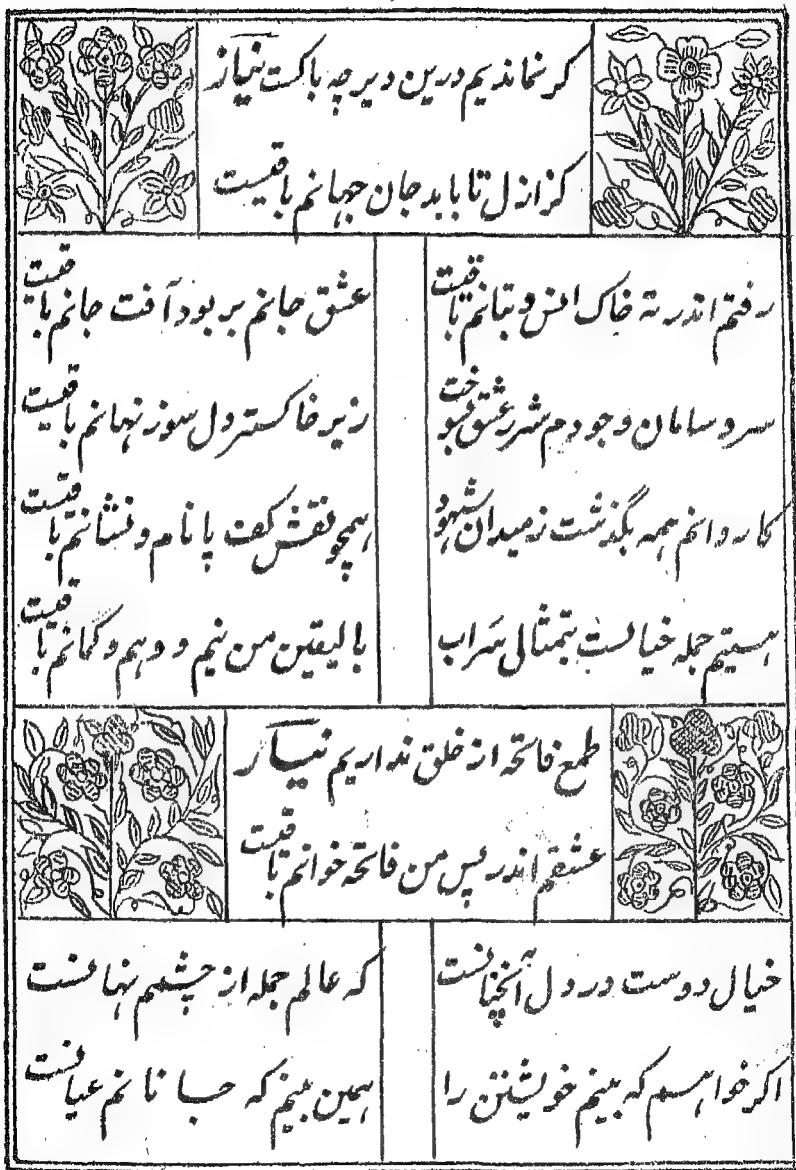 گر نماندیم درین دیر چه باکست نیاز
کز ازل تا بابد جان جهانم باقیست
رفتم اندر ته خاک انس بتانم باقیست
عشق جانم بربود آفت جانم باقیست
سر و سامان وجودم شرر عشق بسوخت
زیر خاکستر دل سوز نهانم باقیست
کاروانم همه بگذشت ز میدان شهود
همچو نقش کف پا نام و نشانم باقیست
هستیم جمله خیالست بتمثال سراب
بالیقین من نیم و وهم و گمانم باقیست
طمع فاتحه از خلق نداریم نیاز
عشقم اندر پس من فاتحه خوانم باقیست
خیال دوست در دل آنچنانست
که عالم جمله از چشمم نهانست
اگر خواهم که بینم خویشتن را
همین بینم که جانانم عیانست